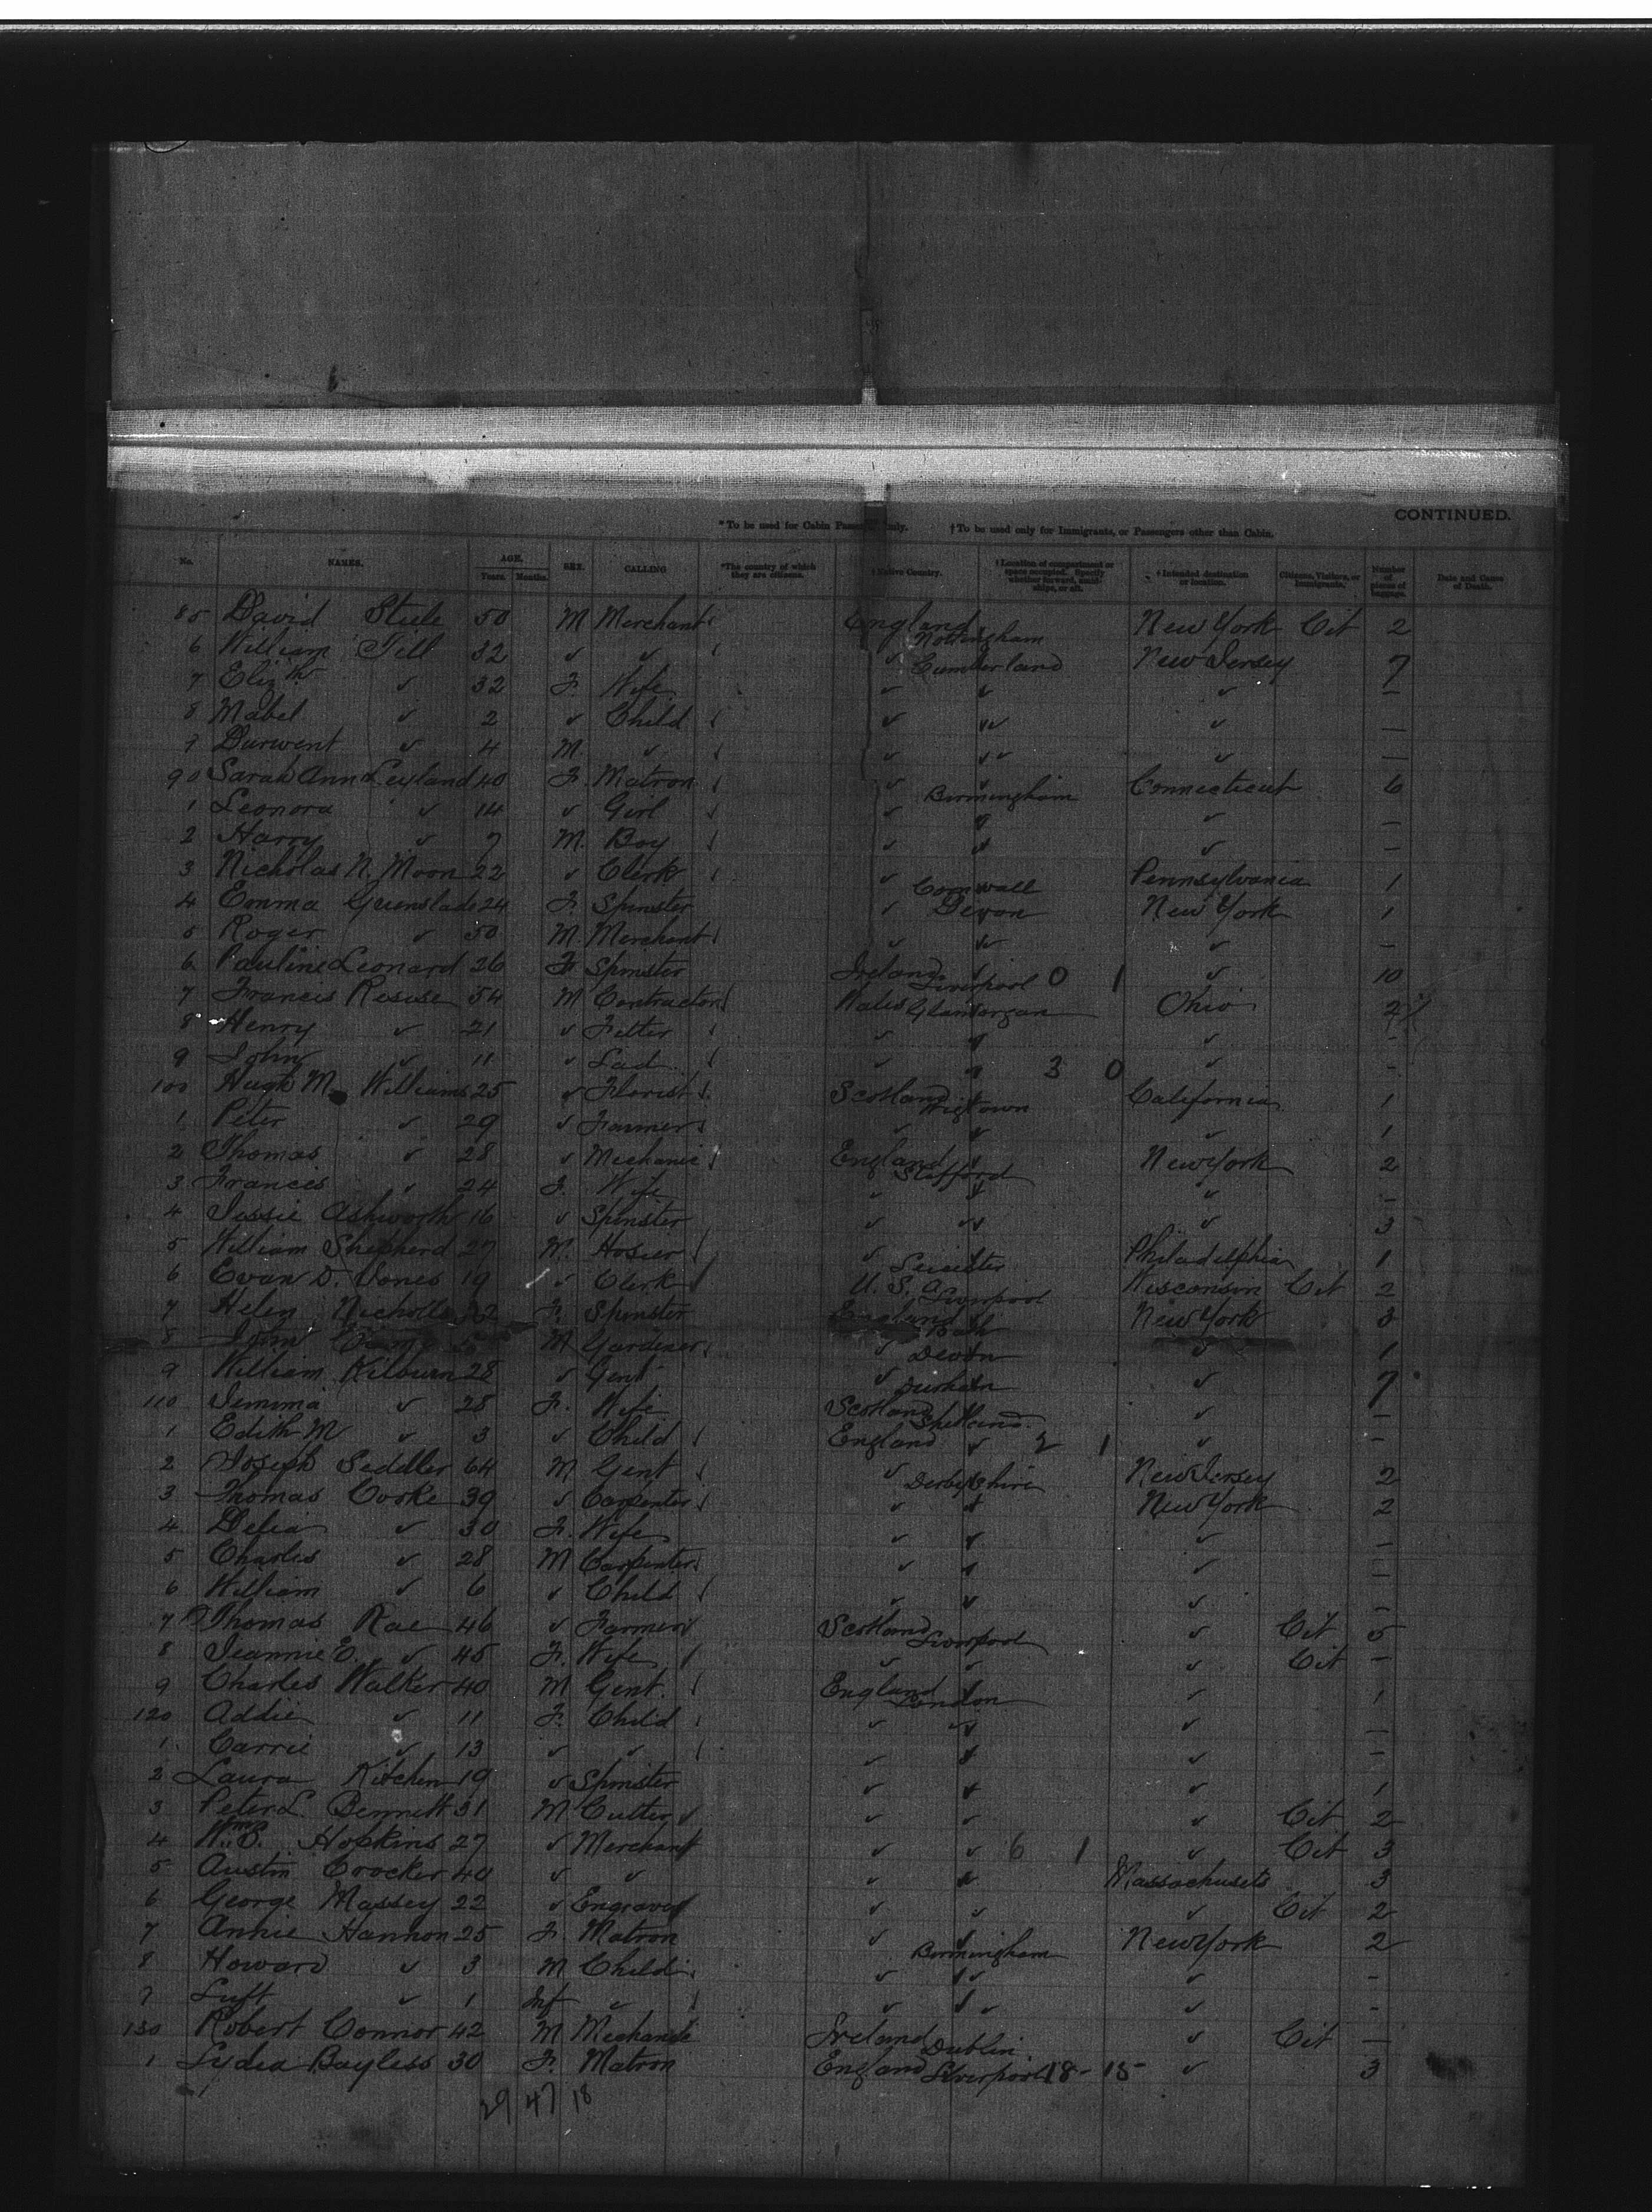 CONTINUED.
* To be used for Cabin Passengers only. † To be used only for Immigrants, or Passengers other than Cabin.
No. NAMES. AGE. Years. Months. SEX. CALLING *The country of which they are citizens. † Native Country. † Location of compartment or space occupied. Specify whether forward, amidships, or aft. † Intended destination or location. Citizens, Visitors, or Immigrants. Number of pieces of baggage. Date and Cause of Death.
85 David Steele 50 M Merchant England Nottingham New York Cit 2
6 William Till 32 ✓ ✓ ✓ Cumberland New Jersey 7
7 Elizth ✓ 32 F. Wife ✓ ✓ ✓ —
8 Mabel ✓ 2 ✓ Child ✓ ✓✓ ✓ —
9 Durwent ✓ 4 M. ✓ ✓ ✓✓ ✓ —
90 Sarah Ann Leyland 40 F. Matron ✓ Birmingham Connecticut 6
1 Leonora ✓ 14 ✓ Girl ✓ ✓ ✓ —
2 Harry ✓ 7 M. Boy ✓ ✓ ✓ —
3 Nicholas N. Moon 22 ✓ Clerk ✓ Cornwall Pennsylvania 1
4 Emma Greenslade 24 F. Spinster ✓ Devon New York 1
5 Roger ✓ 50 M. Merchant ✓ ✓✓ ✓ —
6 Pauline Leonard 26 F. Spinster Ireland Liverpool 0 1 ✓ 10
7 Francis 54 M Contractor Wales Glamorgan Ohio 2
8 Henry ✓ 21 ✓ Fitter ✓ ✓ ✓ -
9 John ✓ 11 ✓ Lad ✓ ✓ 3 0 ✓ -
100 Hugh M Williams 25 ✓ Florist Scotland Wigtown California 1
1 Peter ✓ 29 ✓ Farmer ✓ ✓ ✓ 1
2 Thomas ✓ 28 ✓ Mechanic England Stafford New York 2
3 Frances ✓ 24 F. Wife ✓ ✓ ✓ -
4 Jessie Ashworth 16 ✓ Spinster ✓ ✓✓ ✓ 3
5 William Shepherd 27 M. Hosier ✓ Leicester Philadelphia 1
6 Evan D. Jones 19 ✓ Clerk U.S.A. Liverpool Wisconsin Cit 2
7 Helen Nicholls 22 F. Spinster England Bath New York 3
8 John M Gardener ✓ Devon ✓ 1
9 William Kilburn 28 ✓ Gent ✓ Durham ✓ 7
110 Jemima ✓ 28 F. Wife Scotland Shetland ✓ —
1 Edith M ✓ 3 ✓ Child England ✓ 2 1 ✓ —
2 Joseph Seddler 64 M Gent ✓ Derbyshire New Jersey 2
3 Thomas Cooke 39 ✓ Carpenter ✓ ✓ New York 2
4 Delia ✓ 30 F. Wife ✓ ✓ ✓ —
5 Charles ✓ 28 M Carpenter ✓ ✓ ✓ —
6 William ✓ 6 ✓ Child ✓ ✓ ✓ —
7 Thomas Rae 46 ✓ Farmer Scotland Liverpool ✓ Cit 5
8 Jeannie E. ✓ 45 F. Wife ✓ ✓ ✓ Cit -
9 Charles Walker 40 M Gent. England London ✓ 1
120 Addie ✓ 11 F. Child ✓ ✓✓ ✓ —
1 Carrie ✓ 13 ✓ ✓ ✓ ✓ ✓ —
2 Laura Kitchen 19 ✓ Spinster ✓ ✓ ✓ 1
3 Peter L. Bennett 31 M Cutter ✓ ✓ ✓ Cit 2
4 Wm. P. Hopkins 27 ✓ Merchant ✓ ✓ 6 1 ✓ Cit 3
5 Austin Crocker 40 ✓ ✓ ✓ ✓ Massachusets 3
6 George Massey 22 ✓ Engraver ✓ ✓ ✓ Cit 2
7 Annie Hannon 25 F. Matron ✓ Birmingham New York 2
8 Howard ✓ 3 M Child ✓ ✓✓ ✓ -
9 Luft ✓ 1 Inf ✓ ✓ ✓✓ ✓ -
130 Robert Connor 42 M Mechanic Ireland Dublin ✓ Cit —
1 Lydia Bayless 30 F. Matron England Liverpool 18-15 ✓ 3
29 47 18